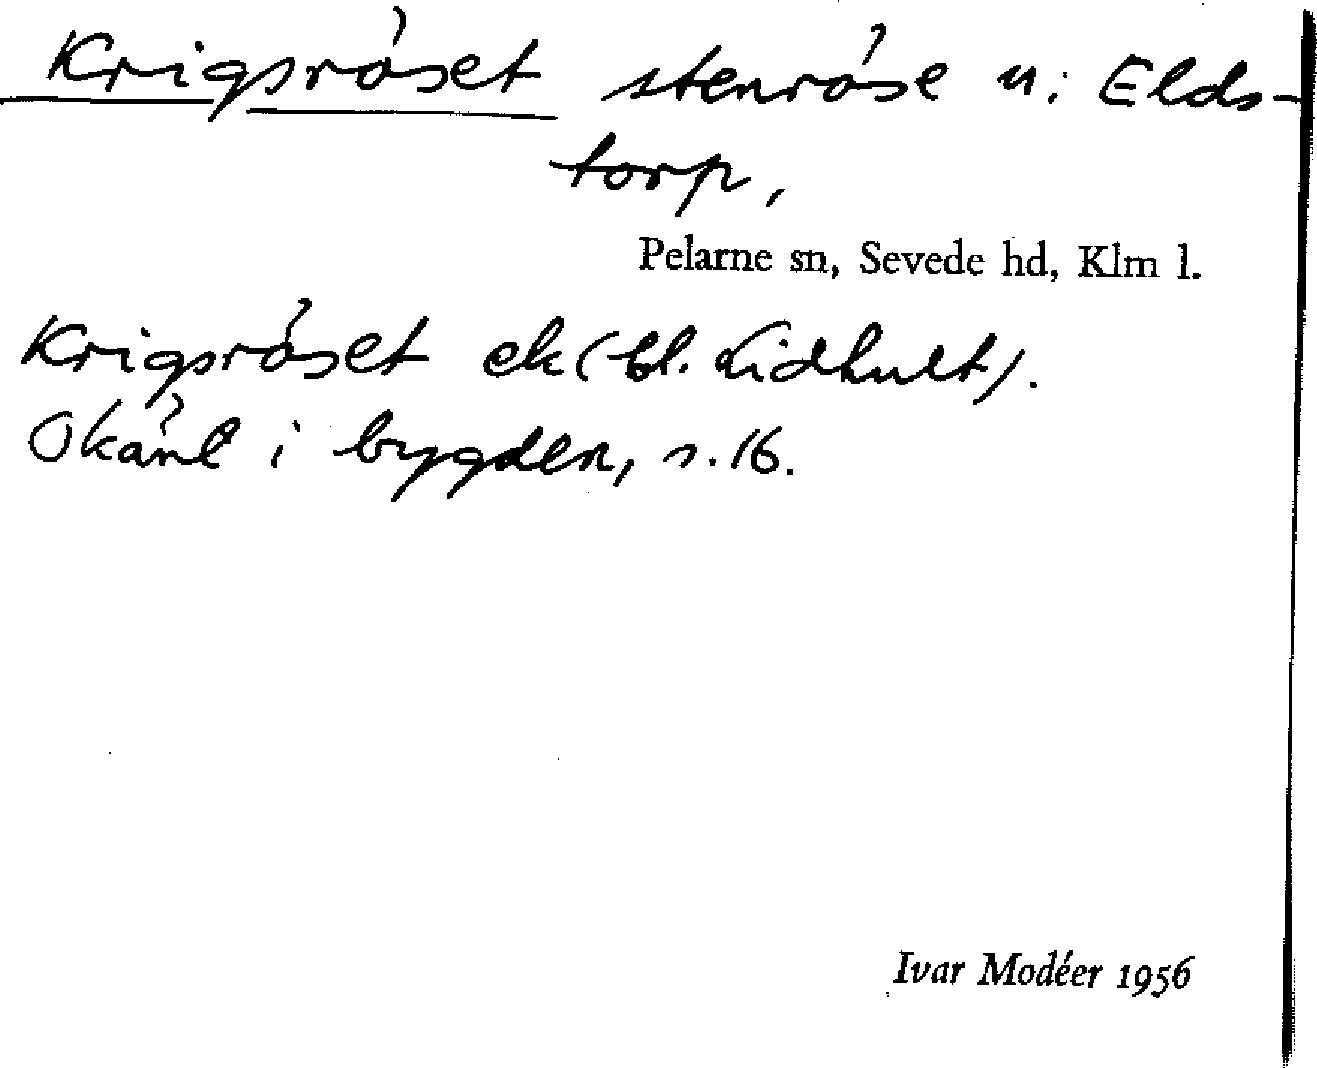 Krigsröset stenröse u: Elds-
torp,
Pelarne sn, Sevede hd, Klm l.
Krigsröset ek (bl. Lidhult).
Okänt i bygden, s. 16.
Ivar Modéer 1956